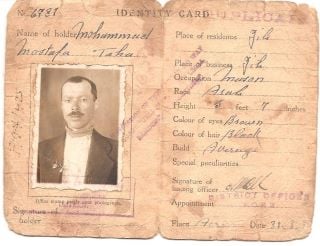 No. 6787
IDENTITY CARD
Name of holder Mohammad
Mostafa Taha
Office stamp partly over photograph.
Signature of
holder
DUPLICATE
Place of residence
Place of business
Occupation Mason
Race Arab
Height 5 feet 7 inches
Colour of eyes Brown
Colour of hair Black
Build Average
Special peculiarities.
Signature of
issuing officer
Appointment
DISTRICT OFFICER
Place Date